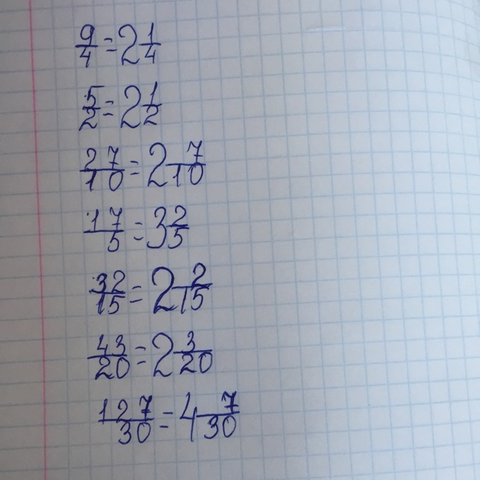 9/4 = 2 1/4
5/2 = 2 1/2
27/10 = 2 7/10
17/5 = 3 2/5
32/15 = 2 2/15
43/20 = 2 3/20
127/30 = 4 7/30